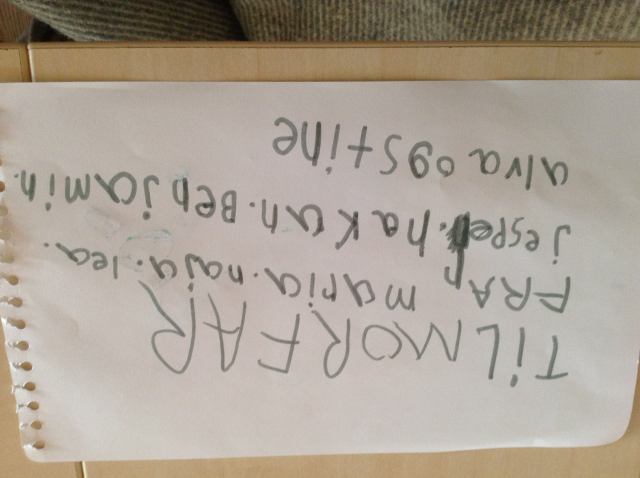 TiL MORFAR
FRA maria. naja. lea.
jesper. hakan. Benjamin.
alva og stine